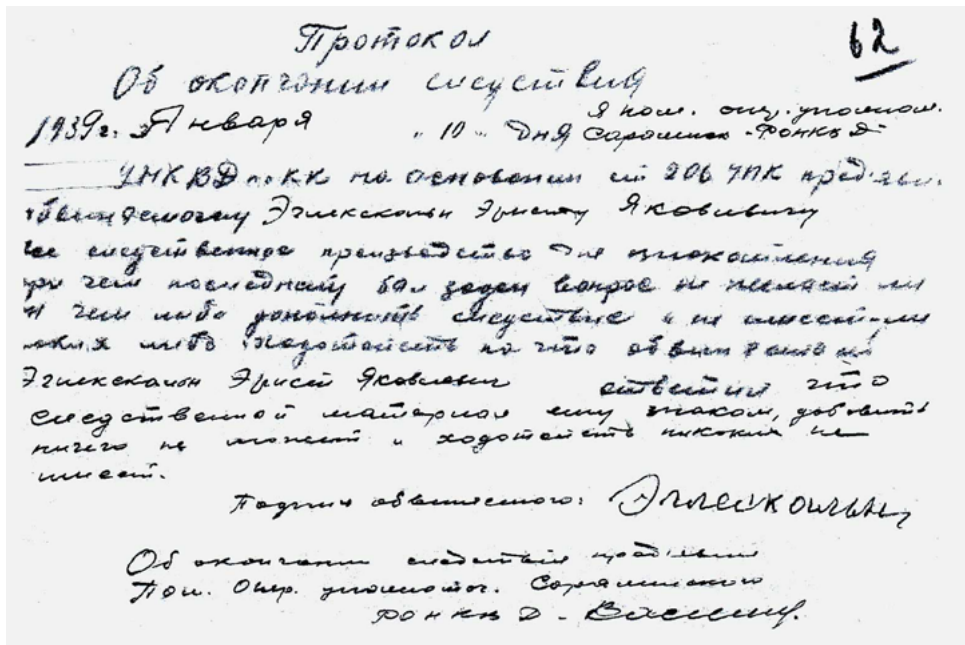 62
Протокол
Об окончании следствия
1939г. Января "10" дня Я пом. опер. уполном.
РОНКВД
УНКВД по КК на основании ст 206 УПК предъяви.
обвиняемому Эрнсту Яковлевичу
все следственное производство для ознакомления
при чем последнему был задан вопрос не желает ли
чем либо дополнить следствие и не имеет ли
каких либо ходотайств на что обвиняемый
Эрнст Яковлевич ответил что
следственной материал ему знаком, добавить
ничего не может и ходотайств никаких не
имеет.
Подпись обвиняемого:
Об окончании следствия предъявил
Пом. Опер. уполномоч.
РОНКВД -